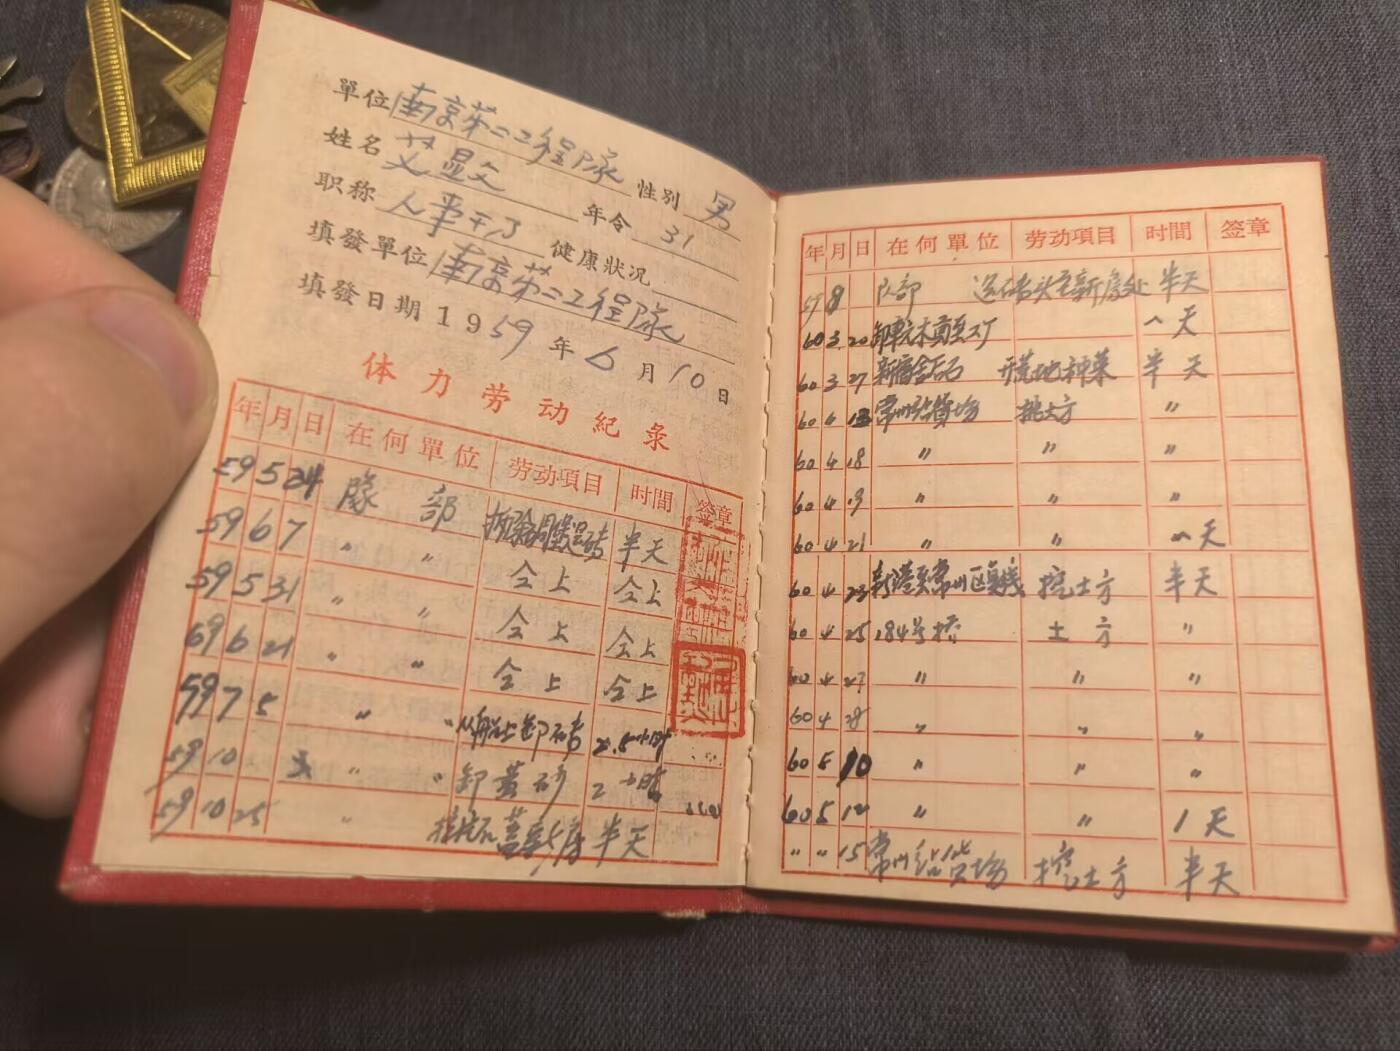 單位 南京第二工程隊 性別 男
姓名 艾显文 年令 31
职称 人事干了 健康狀况
填發單位 南京第二工程隊
填發日期 1959年6月10日
体力劳动紀录
年 月 日 在何單位 劳动項目 时間 签章
59 5 24 隊部 拆除碉堡 半天
59 6 7 〃 〃 仝上 仝上
59 5 31 〃 〃 仝上 仝上
59 6 21 〃 〃 仝上 仝上
59 7 5 〃 〃 从船上卸石 2.5小时
59 10 〃 〃 卸黄砂 2小时
59 10 25 〃 半天
年 月 日 在何單位 劳动項目 时間 签章
59 8 队部 送砖头至新房处 半天
60 3 20 一天
60 3 27 新宿舍 开荒地种菜 半天
60 4 13 常州 货場 挑土方 〃
60 4 18 〃 〃 〃
60 4 19 〃 〃
60 4 21 〃 〃 一天
60 4 23 新港至常州区 挖土方 半天
60 4 25 184号桥 土方 〃
60 4 27 〃 〃 〃
60 4 28 〃 〃 〃
60 5 10 〃 〃 〃
60 5 12 〃 〃 1天
〃 〃 15 常州 货場 挖土方 半天